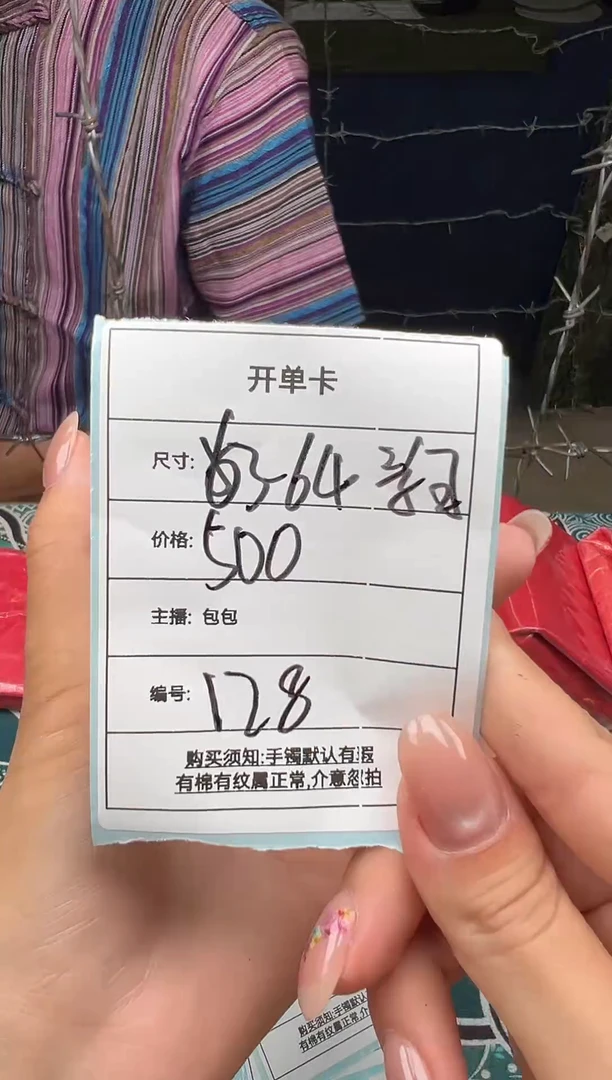 开单卡
尺寸: 63-64
价格: 500
主播: 包包
编号: 128
购买须知:手镯默认有瑕
有棉有纹属正常,介意忽拍
购买须知:手镯默认
有棉有纹属正常,介